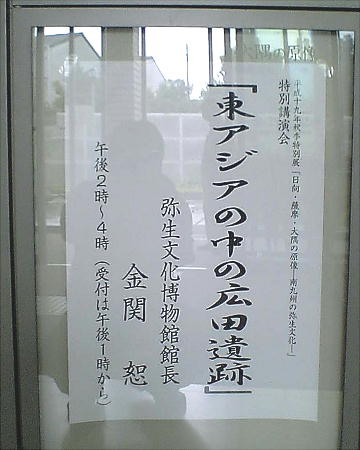 平成十九年秋季特別展「日向・薩摩・大隅の原像―南九州の弥生文化―」
特別講演会
「東アジアの中の広田遺跡」
弥生文化博物館館長
金関 恕
午後2時〜4時(受付は午後1時から)
大隅の原像